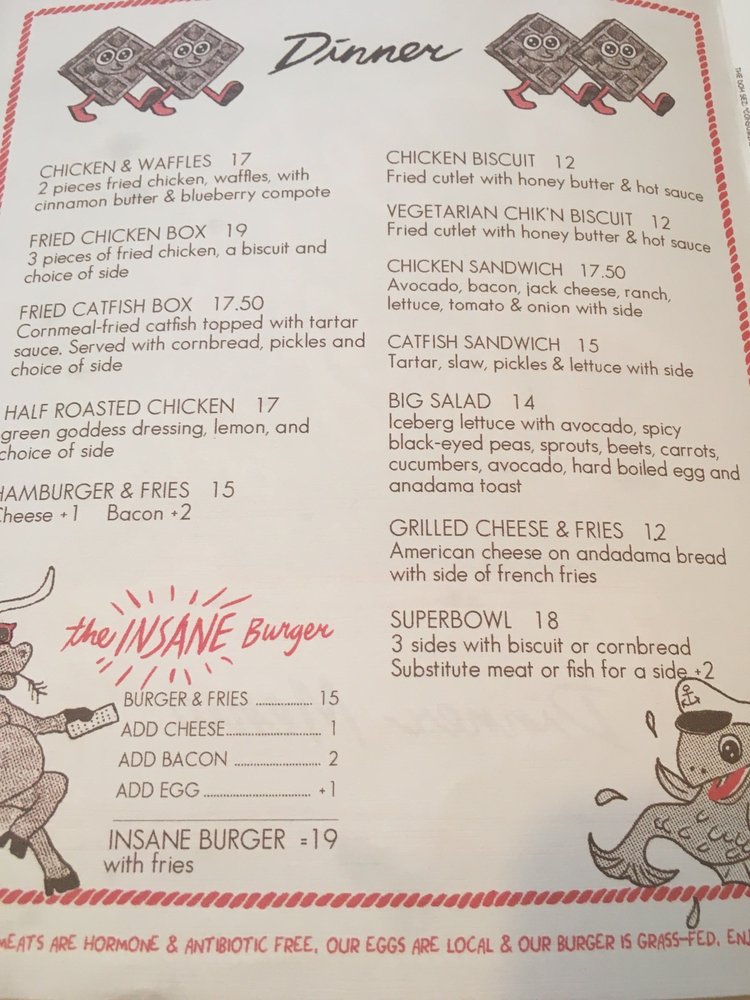 Dinner
CHICKEN & WAFFLES 17
2 pieces fried chicken, waffles, with
cinnamon butter & blueberry compote
FRIED CHICKEN BOX 19
3 pieces of fried chicken, a biscuit and
choice of side
FRIED CATFISH BOX 17.50
Cornmeal-fried catfish topped with tartar
sauce. Served with cornbread, pickles and
choice of side
HALF ROASTED CHICKEN 17
green goddess dressing, lemon, and
choice of side
HAMBURGER & FRIES 15
Cheese +1 Bacon +2
the INSANE Burger
BURGER & FRIES ................. 15
ADD CHEESE............................ 1
ADD BACON ......................... 2
ADD EGG ............................... +1
INSANE BURGER =19
with fries
CHICKEN BISCUIT 12
Fried cutlet with honey butter & hot sauce
VEGETARIAN CHIK'N BISCUIT 12
Fried cutlet with honey butter & hot sauce
CHICKEN SANDWICH 17.50
Avocado, bacon, jack cheese, ranch,
lettuce, tomato & onion with side
CATFISH SANDWICH 15
Tartar, slaw, pickles & lettuce with side
BIG SALAD 14
Iceberg lettuce with avocado, spicy
black-eyed peas, sprouts, beets, carrots,
cucumbers, avocado, hard boiled egg and
anadama toast
GRILLED CHEESE & FRIES 12
American cheese on andadama bread
with side of french fries
SUPERBOWL 18
3 sides with biscuit or cornbread
Substitute meat or fish for a side +2
MEATS ARE HORMONE & ANTIBIOTIC FREE, OUR EGGS ARE LOCAL & OUR BURGER IS GRASS-FED.